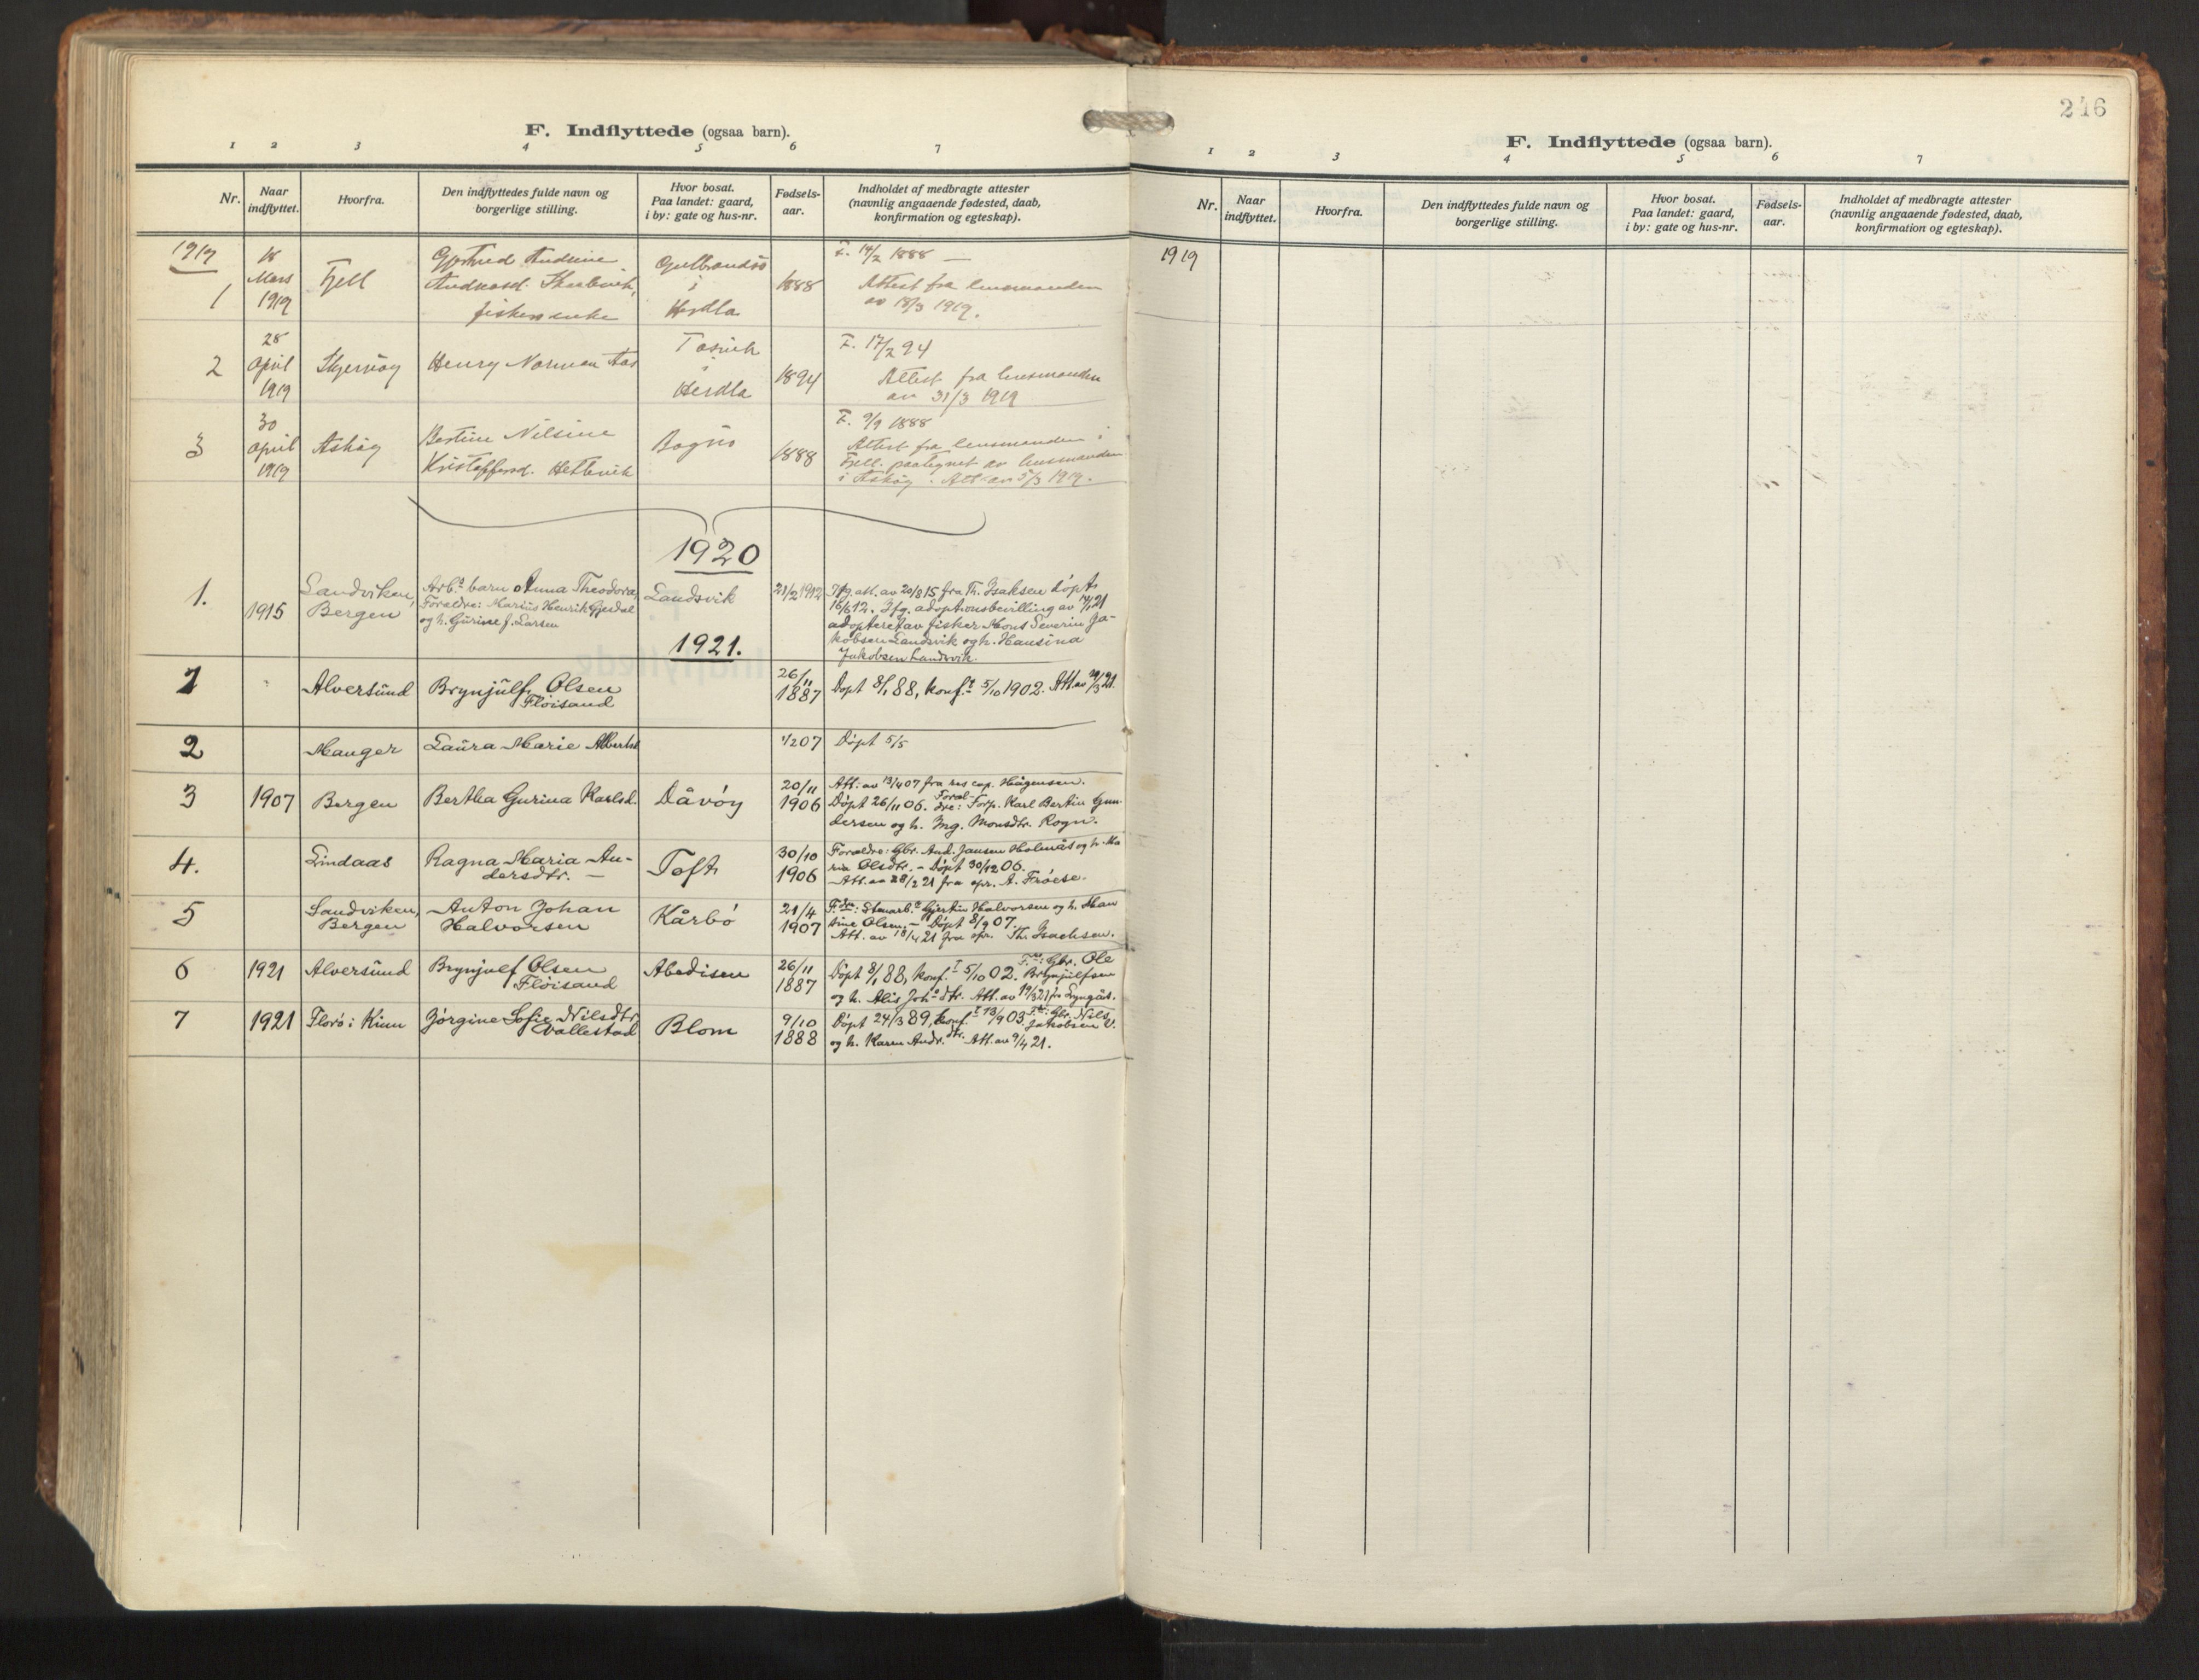 F. Indflyttede (ogsaa barn).
1 2 3 4 5 6 7
Nr. Naar indflyttet. Hvorfra. Den indflyttedes fulde navn og borgerlige stilling. Hvor bosat. Paa landet: gaard, i by: gate og hus-nr. Fødsels-aar. Indholdet af medbragte attester (navnlig angaaende fødested, daab, konfirmation og egteskap).
1919
1
18 Mars 1919
Fjell
i
Herdla
1888
F. 14/2 1888 —
Attest fra lensmanden
av 18/3 1919.
2
28 April 1919
Skjervøy
Henry Norman Aas
i
Herdla
1894
F. 17/2 94
Attest fra lensmanden
av 31/3 1919
3
30 April 1919
Askøy
Bertine Nilsine
Kristoffersd. Hetlevik
Bognø
1888
F. 9/9 1888
Attest fra lensmanden i
Fjell. paategnet av lensmanden
i Askøy. Att. av 5/3 1919.
1920
1.
1915
Sandviken,
Bergen
Arb.s barn Anna Theodora,
Foreldre: Marius Henrik Gjesdal
og h. Gurine f. Larsen
Landsvik
21/2 1912
Ifg. att. av 20/8 15 fra Th. Isaksen døpt
16/6 12. Ifg. adoptionsbevilling av 14/1 21
adoptert av fisker Mons Severin Ja-
kobsen Landsvik og h. Hansina
Jakobsen Landsvik.
1921.
1
Alversund
Brynjulf Olsen
Fløisand
26/11
1887
Døpt 8/1 88, konf.t 5/10 1902. Att. av 19/3 21.
2
Manger
Laura Marie Alberts
1/2 07
Døpt 5/5
3
1907
Bergen
Bertha Gurina Karlsd.
Dåvøy
20/11
1906
Att. av 13/4 07 fra res. cap. Hågensen.
Døpt 26/11 06. Foreldre: Forp. Karl Bertin Gun-
dersen og h. Ing. Monsdtr. Rogn.
4.
Lindaas
Ragna Maria An-
dersdtr. —
Toft
30/10
1906
Foreldre: Gbr. And. Jansen Holmås og h. Ma
ria Olsdtr. – Døpt 30/12 06.
Att. av 28/2 21 fra spr. A. Frøese.
5
Sandviken,
Bergen
Anton Johan
Halvorsen
Kårbø
21/4
1907
Gjertin Halvorsen og h. Man
tine Olsen. – Døpt 8/9 07.
Att. av 18/4 21 fra spr. Th. Isachsen.
6
1921
Alversund
Brynjulf Olsen
Fløisand
Abedisen
26/11
1887
Døpt 8/1 88, konf.t 5/10 02. F.re: Gbr. Ole
Brynjulfsen
og h. Alis Joh.s dtr. Att. av 19/3 21 fr. Lyngås.
7
1921
Florø i Kinn
Jørgine Sofie Nilsdtr.
Vallestad
Blom
9/10
1888
Døpt 24/3 89, konf.t 13/9 03. F.re: Gbr. Nils
Jakobsen V.
og h. Karen Andr. dtr. Att. av 9/4 21.
246
F. Indflyttede (ogsaa barn).
1 2 3 4 5 6 7
Nr. Naar indflyttet. Hvorfra. Den indflyttedes fulde navn og borgerlige stilling. Hvor bosat. Paa landet: gaard, i by: gate og hus-nr. Fødsels-aar. Indholdet af medbragte attester (navnlig angaaende fødested, daab, konfirmation og egteskap).
1919